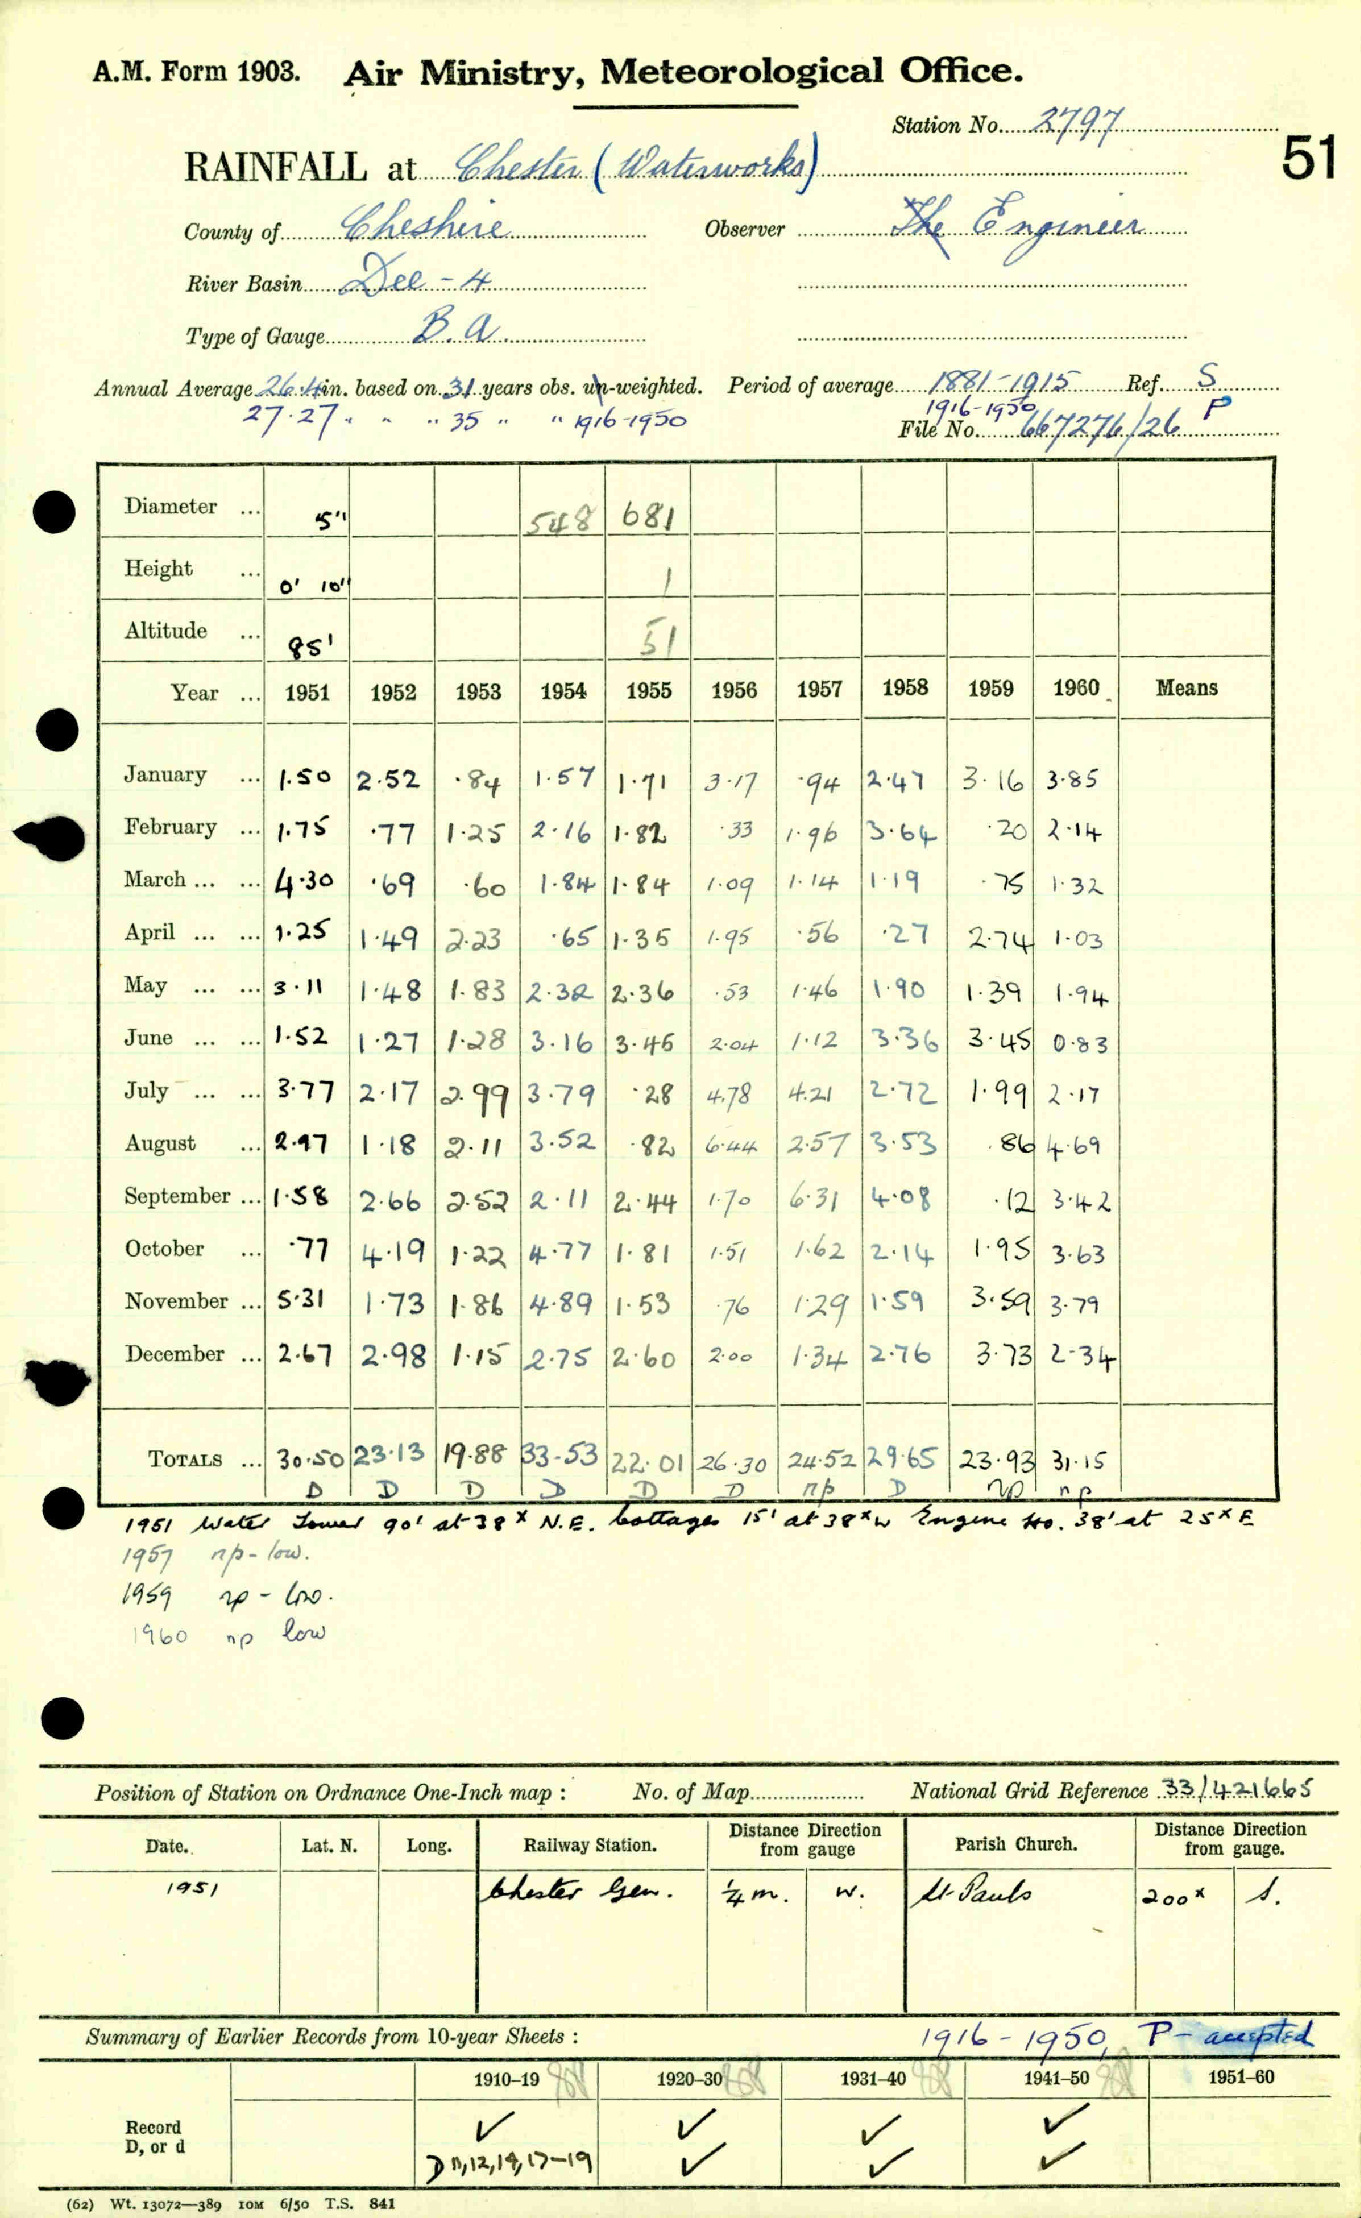 A.M. Form 1903. Air Ministry, Meteorological Office.
Station No. 2797
51
RAINFALL at Chester (Waterworks)
County of Cheshire Observer The Engineer
River Basin Dee - 4
Type of Gauge B.A.
Annual Average 26.4 in. based on 31 years obs. un-weighted. Period of average 1881-1915 Ref. S
27.27 " " " 35 " " 1916-1950 1916-1950 P
File No. 667276/26
Diameter ... 5" 548 681
Height ... 0' 10" 1
Altitude ... 85' 51
Year ... 1951 1952 1953 1954 1955 1956 1957 1958 1959 1960 Means
January ... 1.50 2.52 .84 1.57 1.71 3.17 .94 2.47 3.16 3.85
February ... 1.75 .77 1.25 2.16 1.82 .33 1.96 3.64 .20 2.14
March ... ... 4.30 .69 .60 1.84 1.84 1.09 1.14 1.19 .75 1.32
April ... ... 1.25 1.49 2.23 .65 1.35 1.95 .56 .27 2.74 1.03
May ... ... 3.11 1.48 1.83 2.32 2.36 .53 1.46 1.90 1.39 1.94
June ... ... 1.52 1.27 1.28 3.16 3.45 2.04 1.12 3.36 3.45 0.83
July ... ... 3.77 2.17 2.99 3.79 .28 4.78 4.21 2.72 1.99 2.17
August ... 2.97 1.18 2.11 3.52 .82 6.44 2.57 3.53 .86 4.69
September ... 1.58 2.66 2.52 2.11 2.44 1.70 6.31 4.08 .12 3.42
October ... .77 4.19 1.22 4.77 1.81 1.51 1.62 2.14 1.95 3.63
November ... 5.31 1.73 1.86 4.89 1.53 .76 1.29 1.59 3.59 3.79
December ... 2.67 2.98 1.15 2.75 2.60 2.00 1.34 2.76 3.73 2.34
TOTALS ... 30.50 23.13 19.88 33.53 22.01 26.30 24.52 29.65 23.93 31.15
D D D D D D np D np np
1951 Water Tower 90' at 38x N.E. Cottages 15' at 38x W Engine Ho. 38' at 25x E
1957 np - low.
1959 np - low.
1960 np low
Position of Station on Ordnance One-Inch map : No. of Map National Grid Reference 33/421665
Date. Lat. N. Long. Railway Station. Distance from Direction gauge Parish Church. Distance from Direction gauge.
1951 Chester Gen. 1/4 m. W. St Pauls 200x S.
Summary of Earlier Records from 10-year Sheets : 1916-1950, P - accepted
1910–19 1920–30 1931–40 1941–50 1951–60
Record ✓ ✓ ✓ ✓
D, or d D 11,12,14,17-19 ✓ ✓ ✓
(62) Wt. 13072—389 10M 6/50 T.S. 841